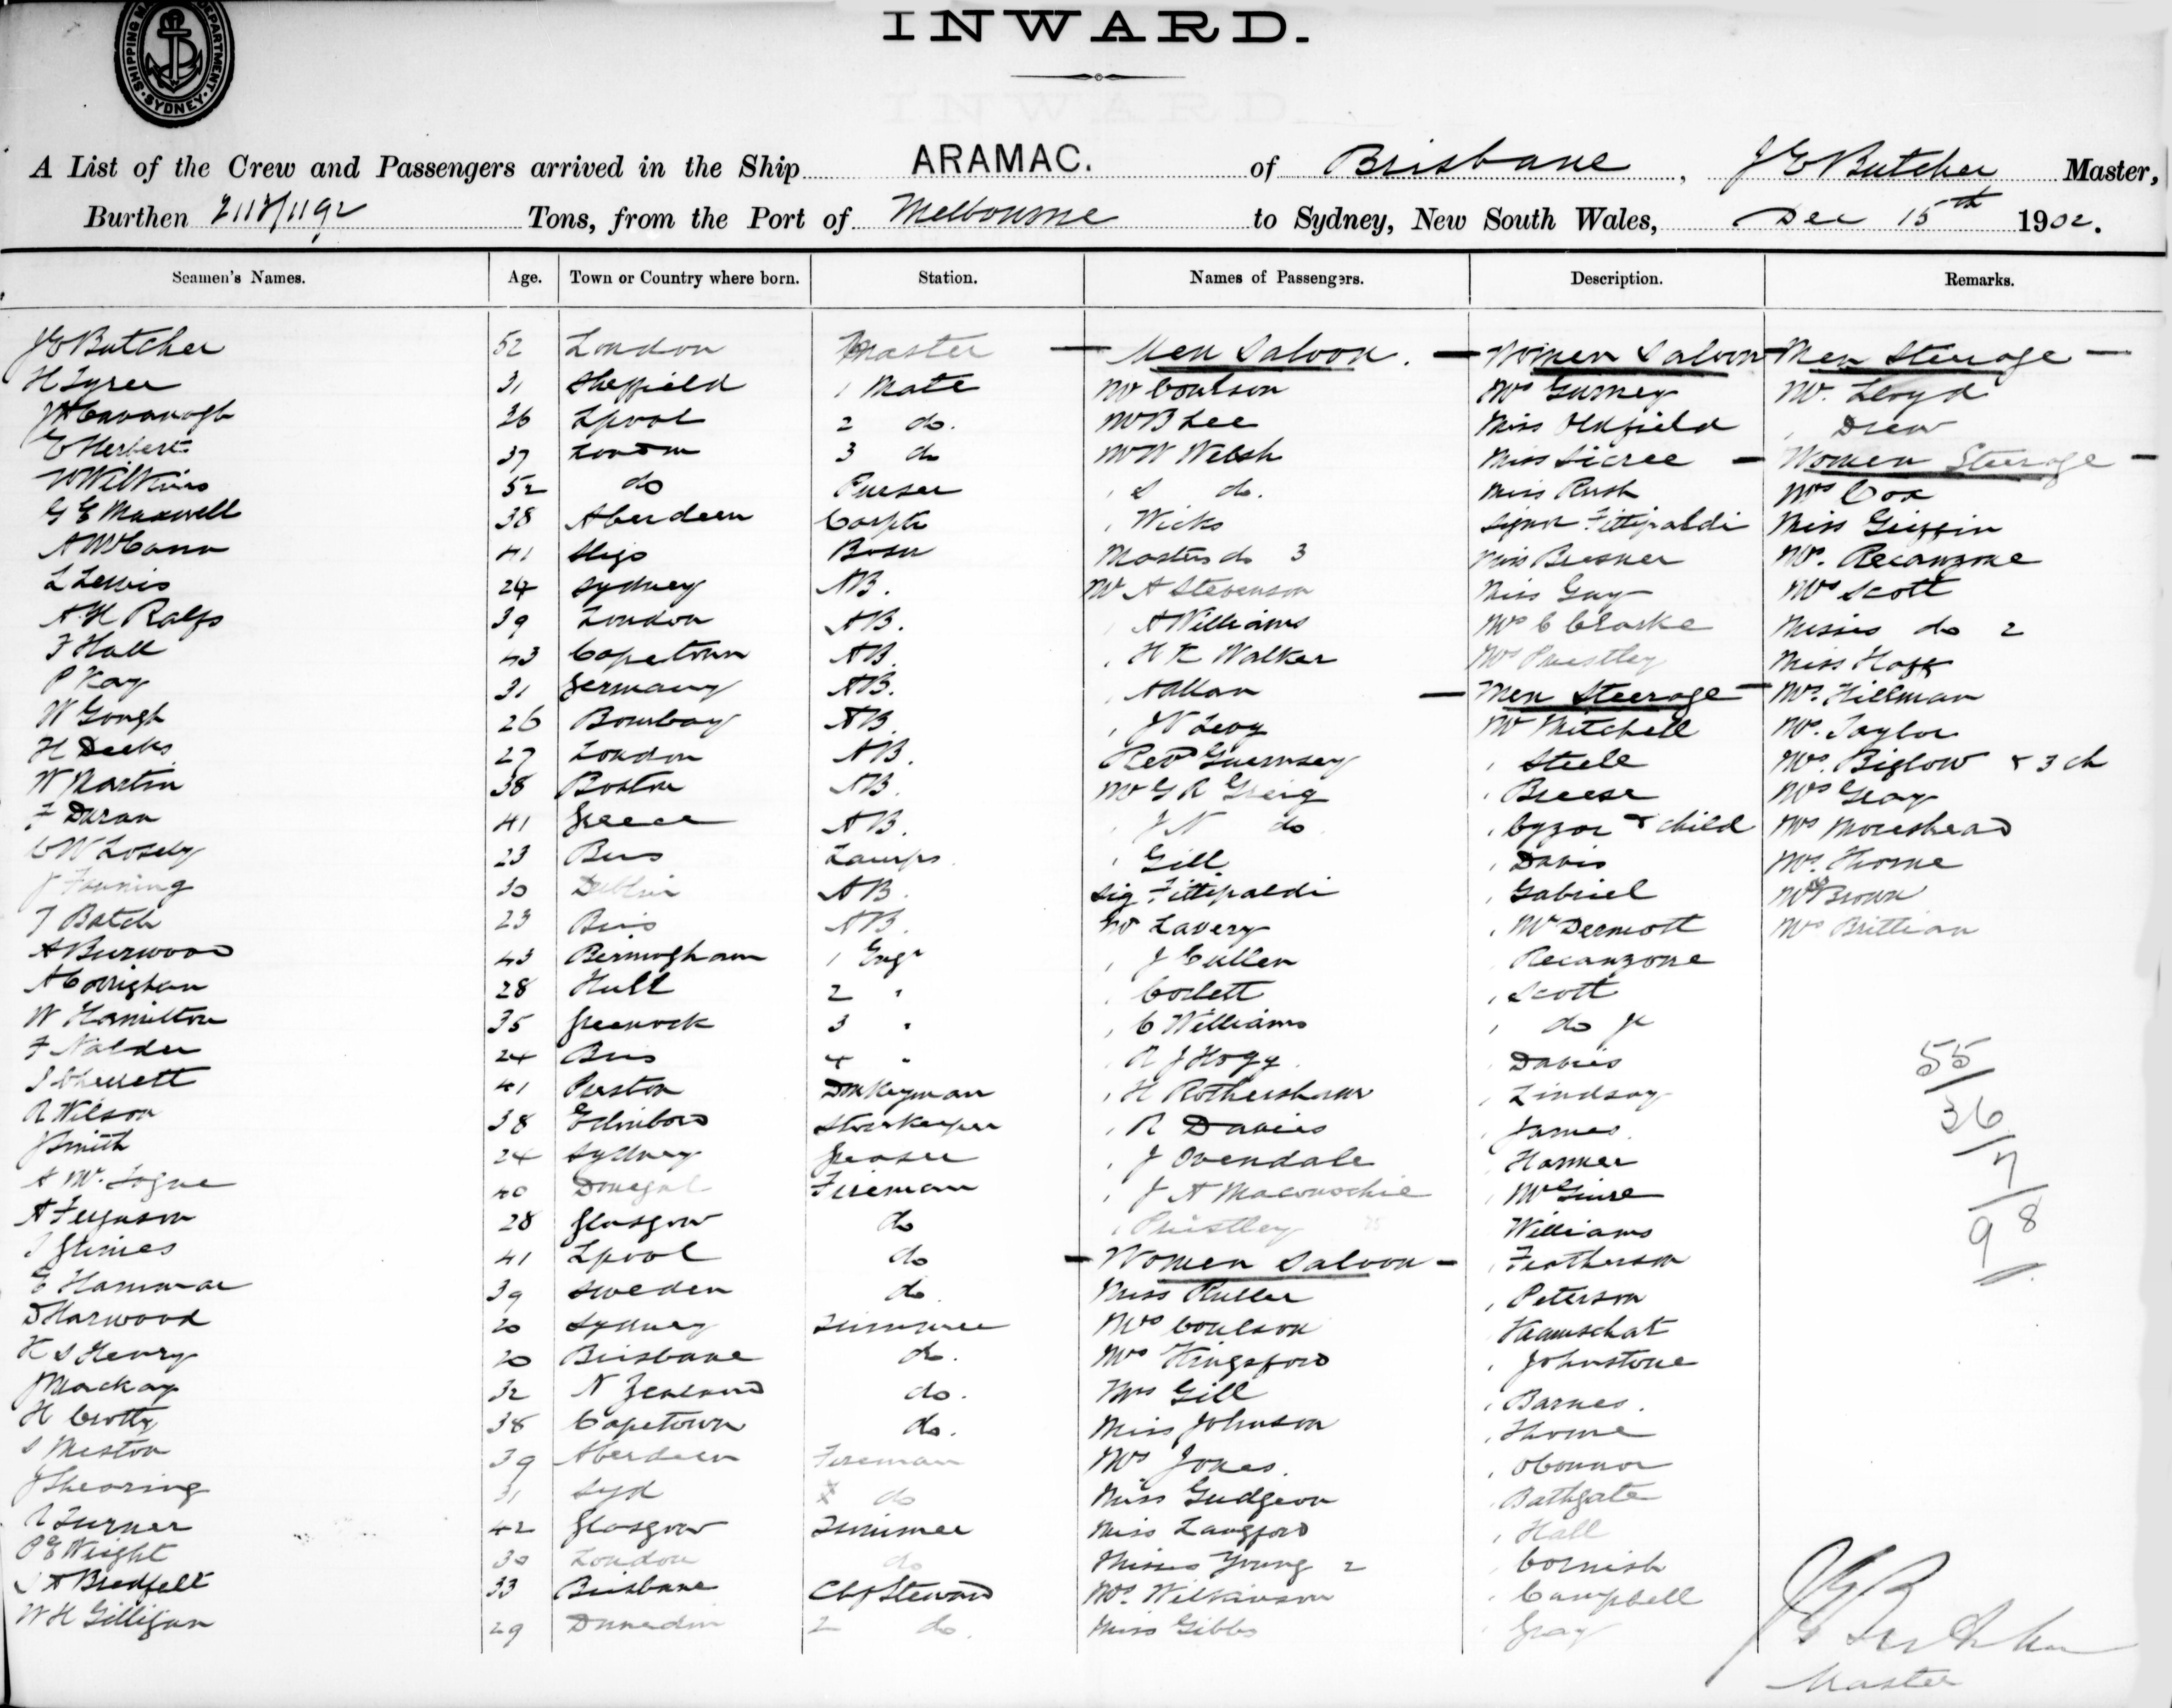 SHIPPING MA DEPARTMENT. SYDNEY
INWARD.
A List of the Crew and Passengers arrived in the Ship ARAMAC. of Brisbane, J E Butcher Master,
Burthen 2118/1192 Tons, from the Port of Melbourne to Sydney, New South Wales, Dec 15th 1902.
Seamen's Names. Age. Town or Country where born. Station. Names of Passengers. Description. Remarks.
J E Butcher 52 London Master Men Saloon. Women Saloon Men Steerage
H Tyrer 31 Sheffield 1 Mate Mr Coulson Mrs Gurney Mr. Lloyd
J H Cavanagh 36 Lpool 2 do. Mr B Lee Miss Oldfield , Drew
E Herbert 37 London 3 do Mr W Welsh Miss Sicree Women Steerage
W Wilkins 52 do Purser , S do. Miss Rush Mrs Cox
G E Maxwell 38 Aberdeen Carptr , Wicks Signor Fittipaldi Miss Griffin
A McCann 41 Sligo Bosn Masters do 3 Miss Bresner Mrs. Recanzone
L Lewis 24 Sydney AB. Mr A Stevenson Miss Guy Mrs Scott
A H Ralfs 39 London AB. , A Williams Mrs C Clarke Misses do 2
F Hall 43 Capetown AB. , H K Walker Mrs Priestley Miss Hoff
P Kay 31 Germany AB. , A Allan Men Steerage Mrs. Hillman
W Gough 26 Bombay AB , J V Levy Mr Mitchell Mrs. Taylor
H Deeks 27 London AB. Revd Guernsey , Steele Mrs. Biglow & 3 ch
W Martin 38 Boston AB. Mr G R Greig , Breese Mrs Gray
F Duran 41 Greece AB. , J N do , Cyzor & child Mrs Moreshead
C W Losely 23 Bris Lamps , Gill , Davis Mrs. Thorne
J Fanning 30 Dublin AB. Sig Fittipaldi , Gabriel Mrs Brown
T Batch 23 Bris AB. Mr Lavery , McDermott Mrs Brittian
A Burwood 43 Birmingham 1 Engr , J Cullen Recanzone
A Corrighan 28 Hull 2 " , Corlett , Scott
W Hamilton 35 Greenock 3 " , C Williams , do Jr
F Nalder 24 Bris 4 " , R J Hogg . Davies
S Cherrett 41 Preston Donkeyman , H Rothershaw , Lindsay
R Wilson 38 Edinboro Storekeeper , R Davies , James.
J Smith 24 Sydney Greaser , J Ovendale , Harmer
A McTogue 40 Donegal Fireman , J A Maconochie , McGuire
A Ferguson 28 Glasgow do , Priestley Williams
J Grimes 41 Lpool do Women Saloon , Featherson
E Hammar 39 Sweden do. Miss Ruller , Peterson
D Harwood 20 Sydney Trimmer Mrs Coulson Kaunschat
K S Henry 20 Brisbane do. Mrs Kingsford , Johnstone
J Mackay 32 N Zealand do. Mrs Gill , Barnes.
H Crotty 38 Capetown do. Miss Johnson , Thorne
S Meston 39 Aberdeen Fireman Mrs Jones. , OConnor
J Shearing 31 Syd do Miss Gudgeon , Bathgate
R Turner 42 Glasgow Trimmer Miss Langford , Hall
P E Wright 30 London do Misses Young 2 , Cornish
J A Bredfelt 33 Brisbane Chf Steward Mrs. Wilkinson , Campbell
W H Gilligan 29 Dunedin 2 do. Miss Gibbs , Gray
55
36
7
98
J E Butcher
Master